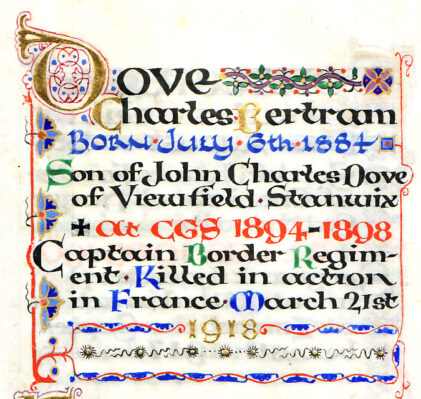 Dove
Charles Bertram
Born · July · 6th · 1884
Son of John Charles Dove
of Viewfield · Stanwix
✠ at CGS 1894-1898
Captain Border Regim-
ent · Killed in action
in France · March 21st
1918